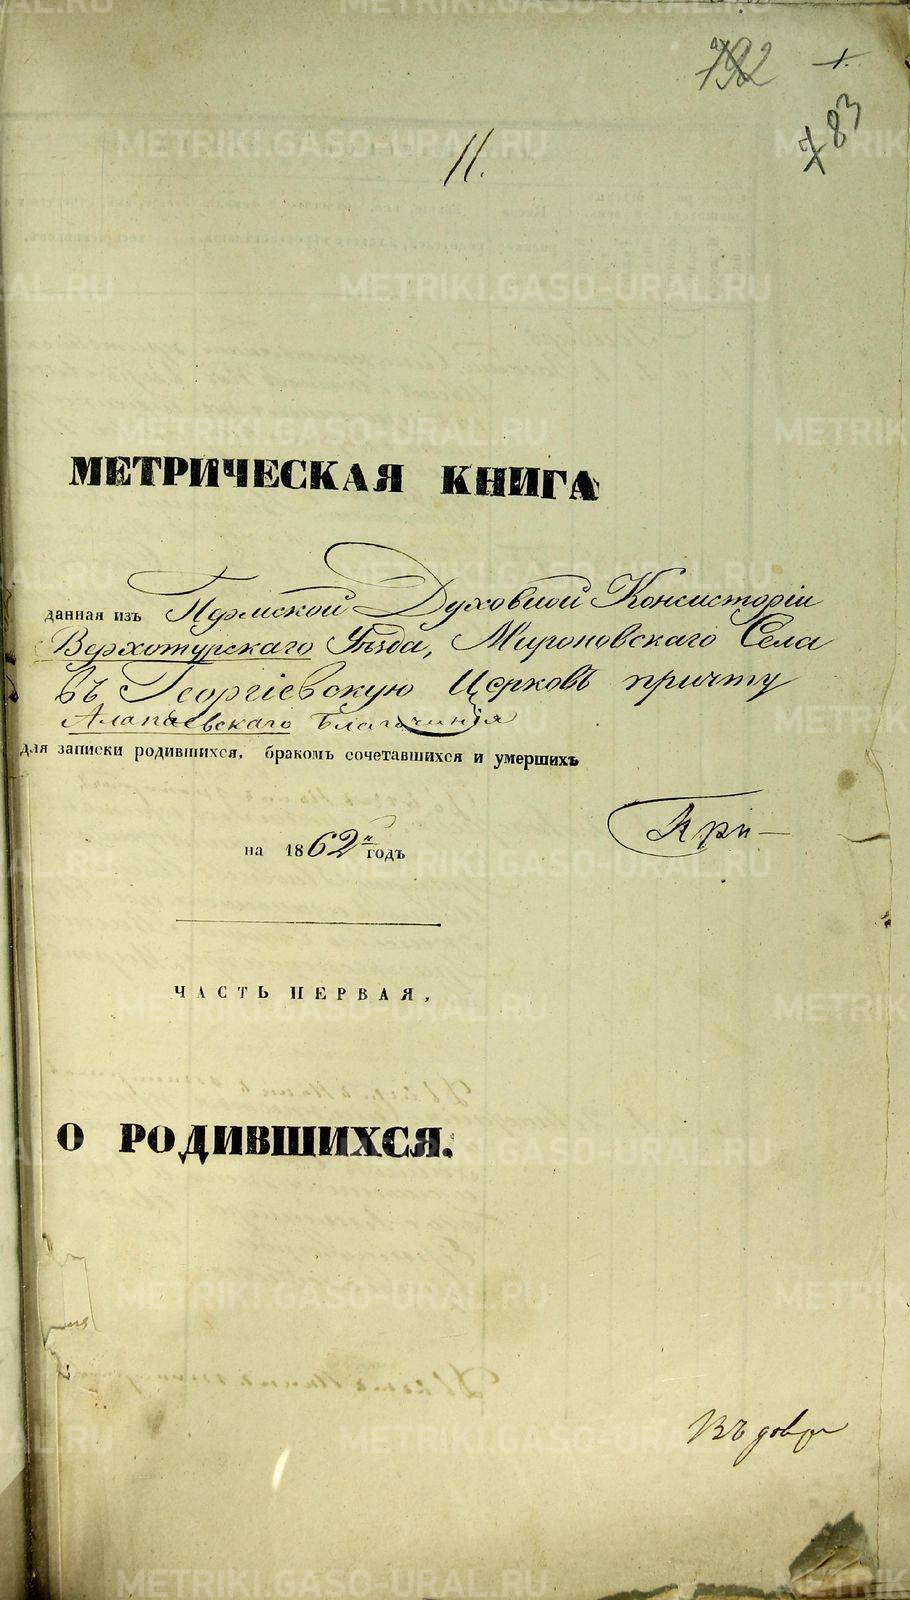 792 1.
783
11.
МЕТРИЧЕСКАЯ КНИГА
данная изъ Пермской Духовной Консисторіи
Верхотурскаго Уѣзда, Мироновскаго Села
въ Георгіевскую Церковь причту
Алапаевскаго Благочинія
для записки родившихся, бракомъ сочетавшихся и умершихъ
на 1862й годъ
При-
ЧАСТЬ ПЕРВАЯ,
О РОДИВШИХСЯ.
METRIKI.GASO-URAL.RU